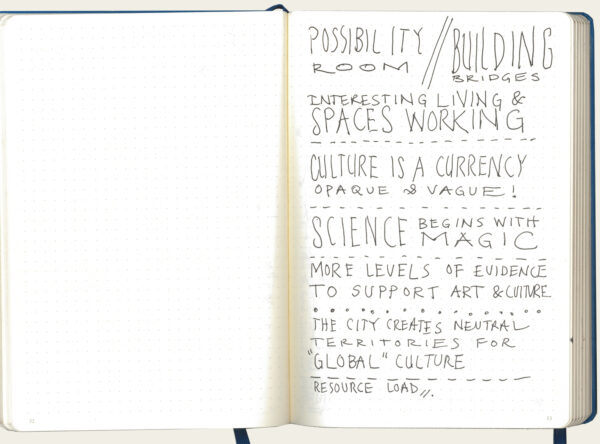 POSSIBILITY // BUILDING
ROOM BRIDGES
INTERESTING LIVING &
SPACES WORKING
CULTURE IS A CURRENCY
OPAQUE & VAGUE!
SCIENCE BEGINS WITH
MAGIC
MORE LEVELS OF EVIDENCE
TO SUPPORT ART & CULTURE
THE CITY CREATES NEUTRAL
TERRITORIES FOR
"GLOBAL" CULTURE
RESOURCE LOAD //.